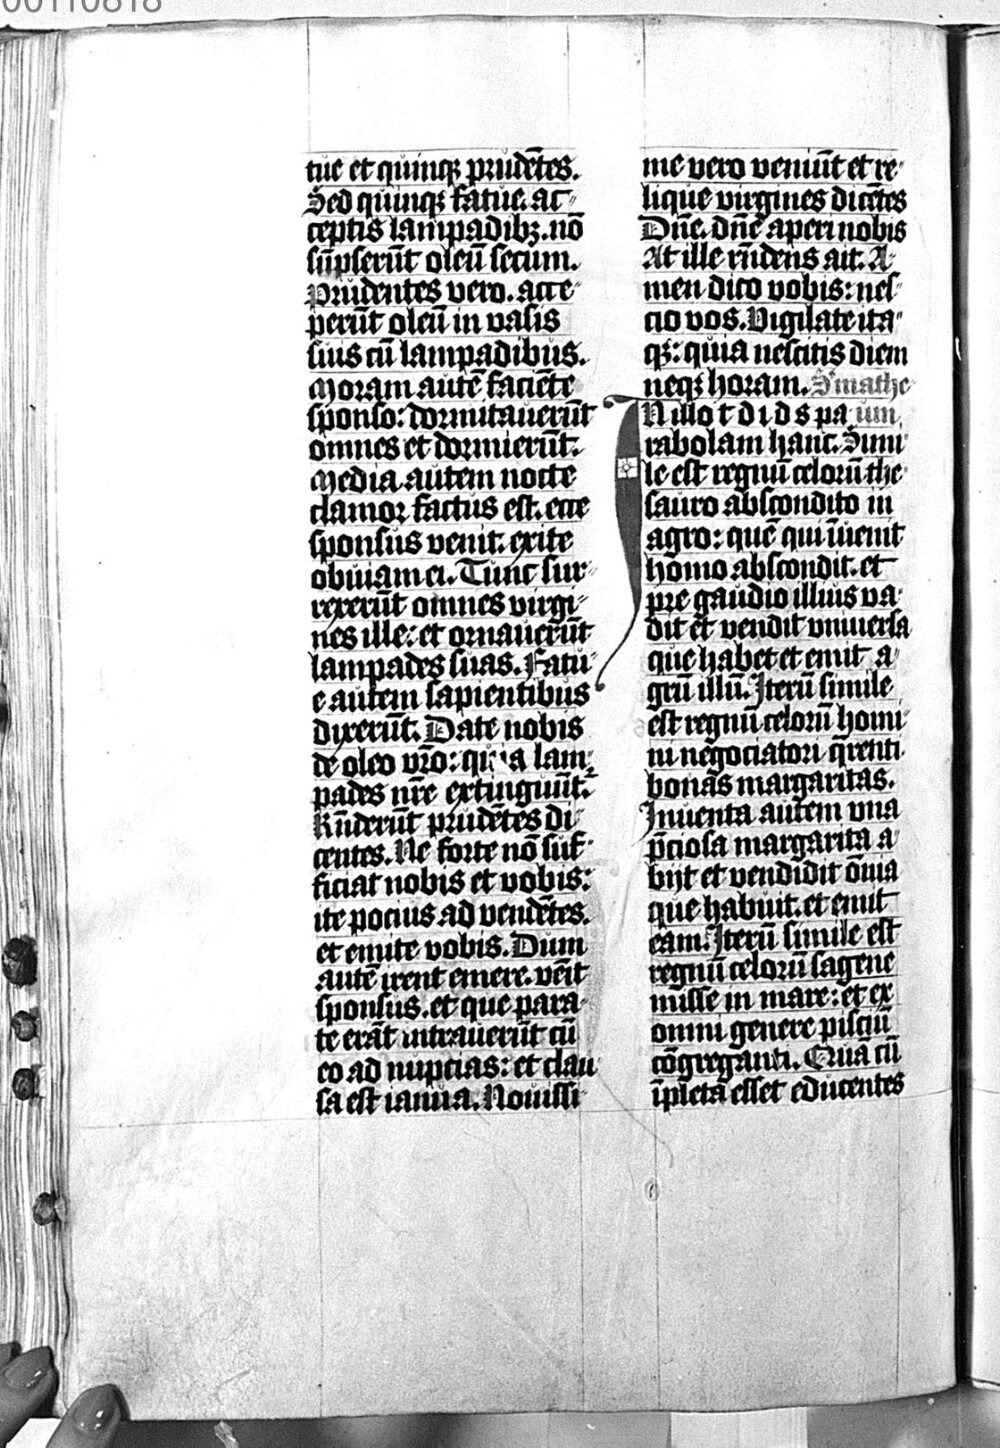 00110818
tue et quinqꝫ prudētes.
Sed quinqꝫ fatue. ac-
ceptis lampadibꝫ. nō
sūpserūt oleū secum.
Prudentes vero. acce-
perūt oleū in vasis
suis cū lampadibus.
Moram autē faciēte
sponso: dormitauerūt
omnes et dormierūt.
Media autem nocte
clamor factus est. ecce
sponsus venit. exite
obuiam ei. Tunc sur-
rexerūt omnes virgi-
nes ille: et ornauerūt
lampades suas. Fatu-
e autem sapientibus
dixerūt. Date nobis
de oleo vr̄o: quia lam-
pades nr̄e extinguūt.
Rn̄derūt prudētes di-
centes. Ne forte nō suf-
ficiat nobis et vobis:
ite pocius ad vendētes.
et emite vobis. Dum
autē irent emere. vēit
sponsus. et que para-
te erāt intrauerūt cū
eo ad nupcias: et clau-
sa est ianua. Nouissi-
me vero veniūt et re-
lique virgines dicētes
Dn̄e. dn̄e aperi nobis
At ille rn̄dens ait. A-
men dico vobis: nes-
cio vos. Vigilate ita-
qꝫ: quia nescitis diem
neqꝫ horam. S' mathe-
IN illo t d i d s pa um
rabolam hanc. Simi-
le est regnū celorū the-
sauro abscondito in
agro: quē qui īuenit
homo abscondit. et
pre gaudio illius va-
dit et vendit vniuersa
que habet et emit a-
grū illū. Iterū simile
est regnū celorū homi-
ni negociatori q̄renti
bonas margaritas.
Inuenta autem vna
p̄ciosa margarita a-
bijt et vendidit ōnia
que habuit. et emit
eam. Iterū simile est
regnū celorū sagene
misse in mare: et ex
omni genere pisciū
cōgreganti. Quā cū
īpleta esset educentes